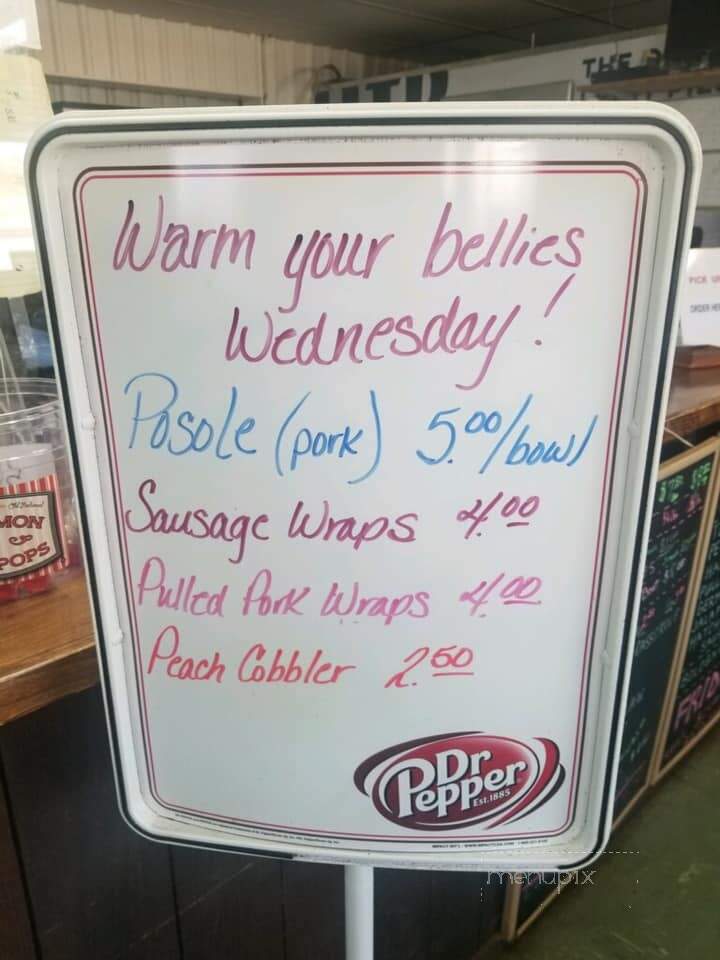 THE
Warm your bellies
Wednesday!
Posole (pork) 5.00/bowl
Sausage Wraps 4.00
Pulled Pork Wraps 4.00
Peach Cobbler 2.50
Dr
Pepper
EST. 1885
MON
POPS
PICK U
ORDER HE
menupix